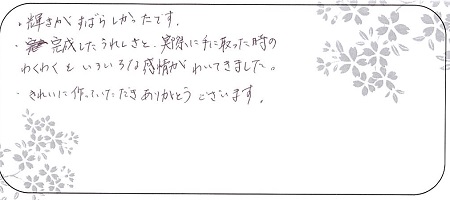 ・輝きがすばらしかったです。
・完成したうれしさと、実際に手に取った時の
わくわくといろいろな感情がわいてきました。
・きれいに作っていただきありがとうございます。